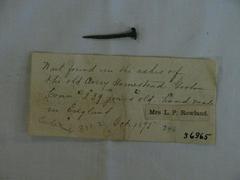 Nail found in the ashes of
the old Avery Homestead Groton
Conn 239 years old. Hand made
in England
Oct. 1895
Mrs. L. P. Rowland.
36965